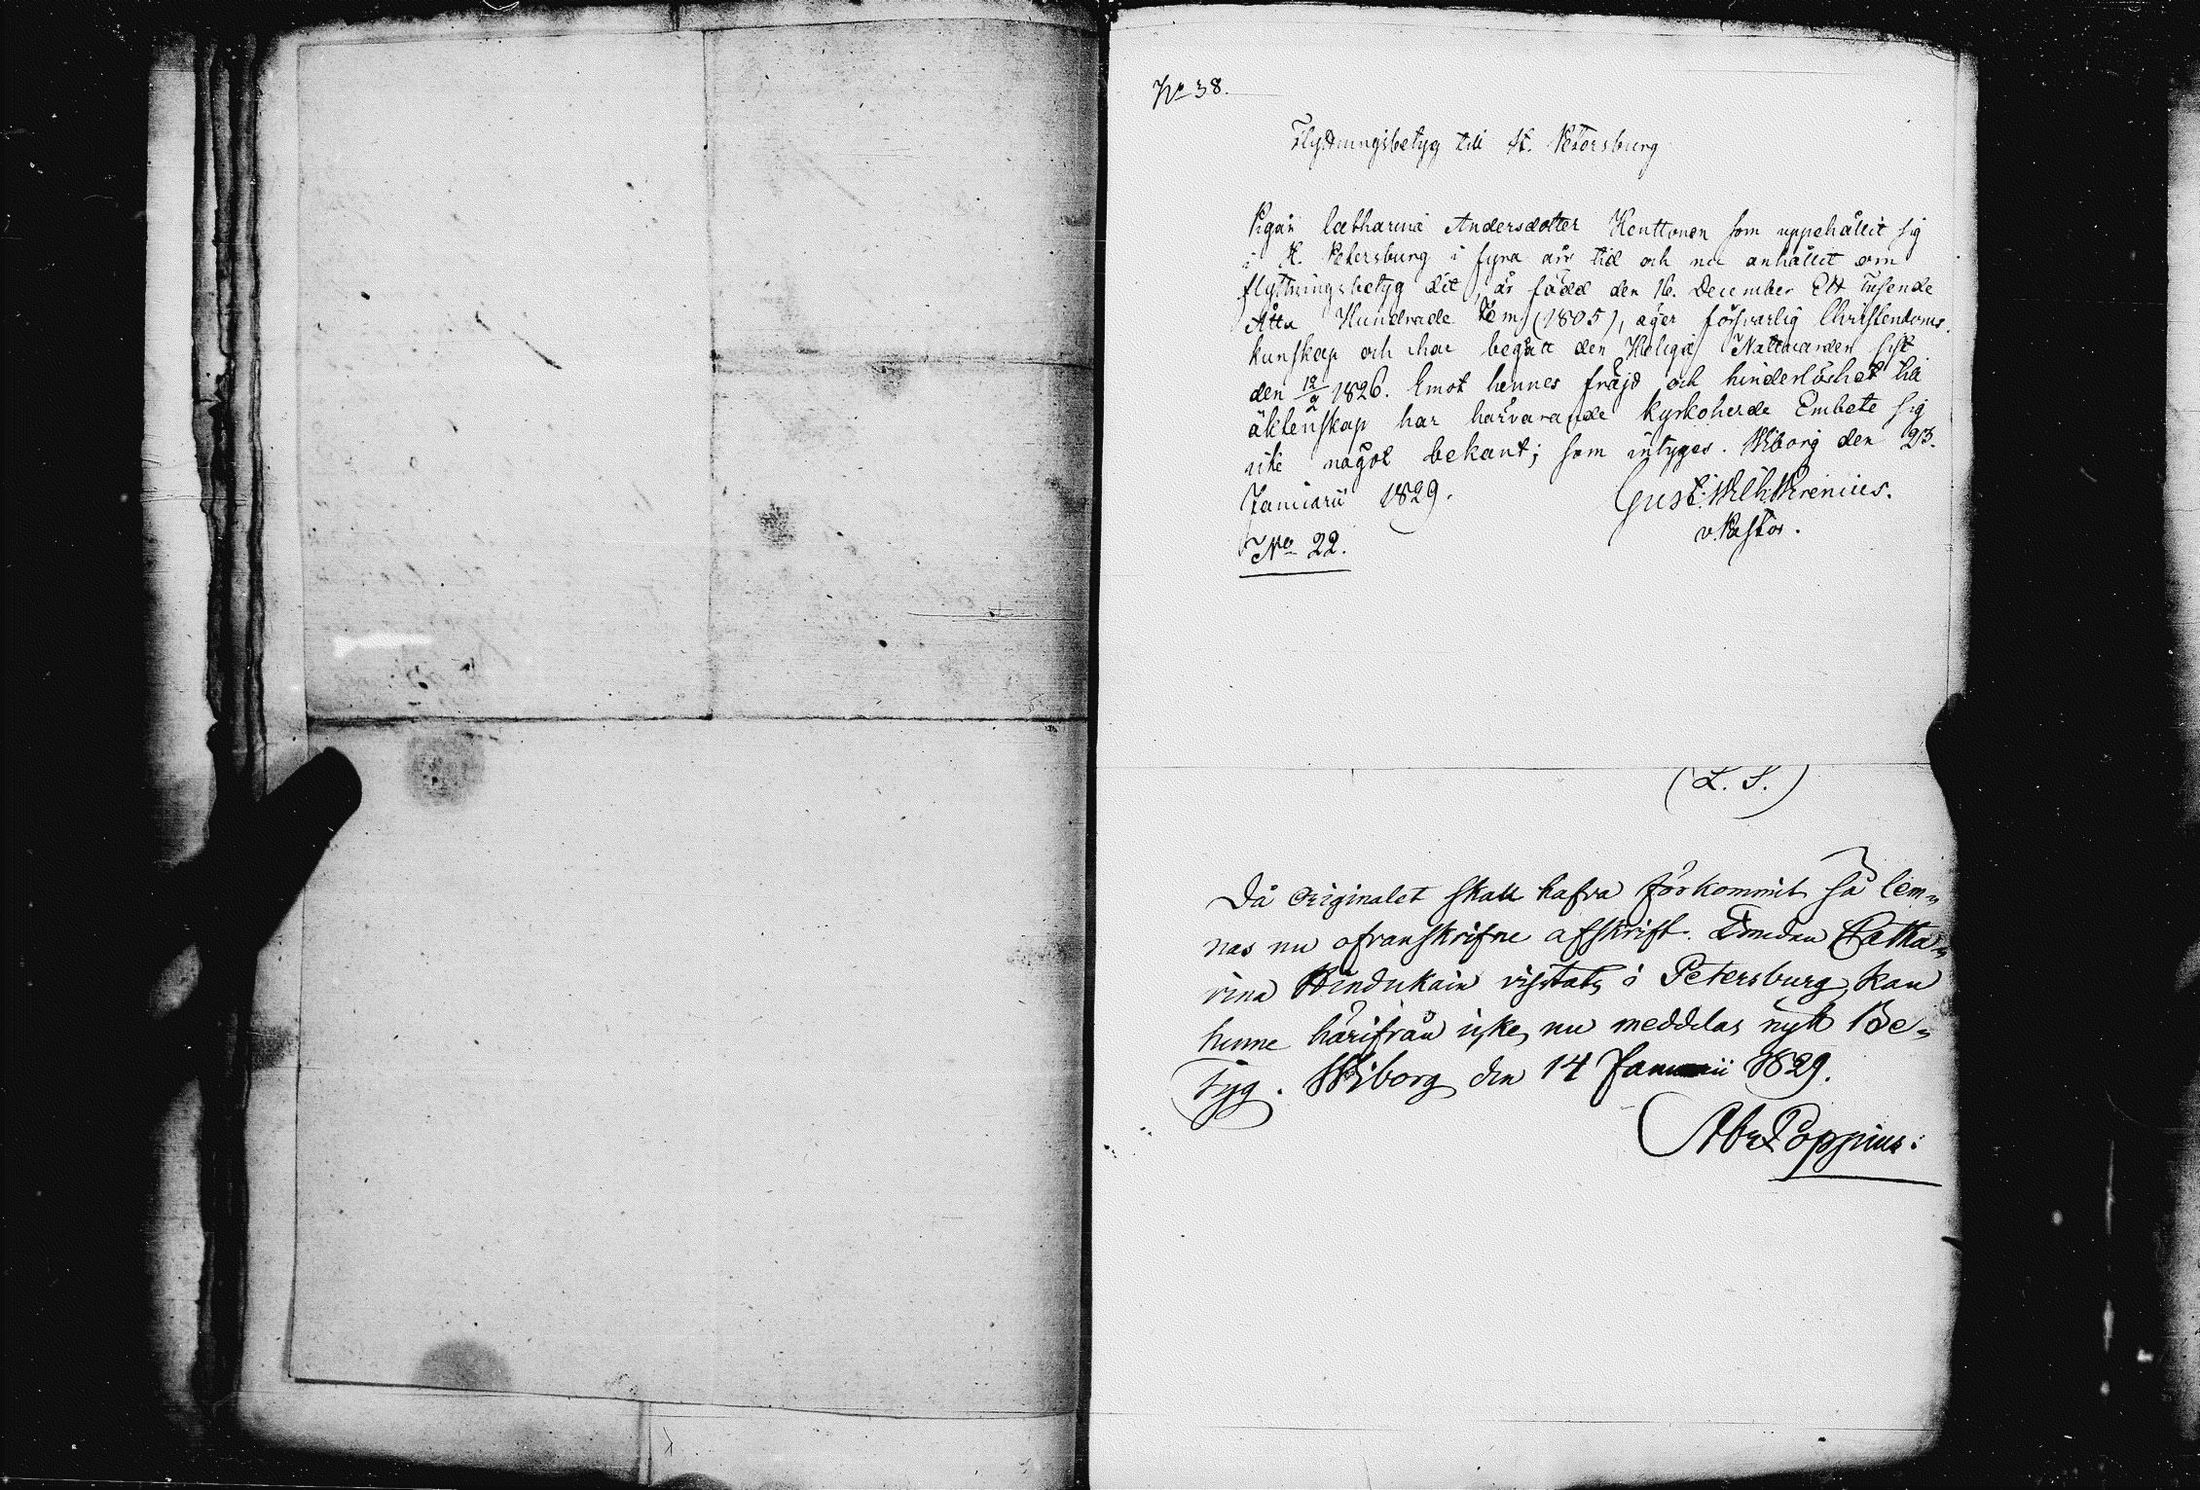 No 38.
Flyttningsbetyg till St. Petersburg
Pigan Catharina Andersdotter Kenttonen som uppehållit sig
i St. Petersburg i fyra års tid och nu anhållit om
flyttningsbetyg dit, är född den 16. December Ett Tusende
Åtta Hundrade Fem (1805), äger försvarlig Christendoms
kunskap och har begått den Heliga Nattvarden sist
den 12/2 1826. Emot hennes fräjd och hinderlöshet till
äktenskap har härvarande Kyrkoherde Embete sig
icke något bekant; som intygas. Wiborg den 23.
Januarii 1829. Gust: Wilh
v. Pastor.
No 22.
(L. S.)
Då Originalet skall hafva förkommit så lem-
nas nu ofvanskrifne afskrift. Catha-
rina vistats i Petersburg, kan
henne härifrån icke nu meddelas nytt Be-
tyg. Wiborg den 14 Januarii 1829.
Ab Poppius: